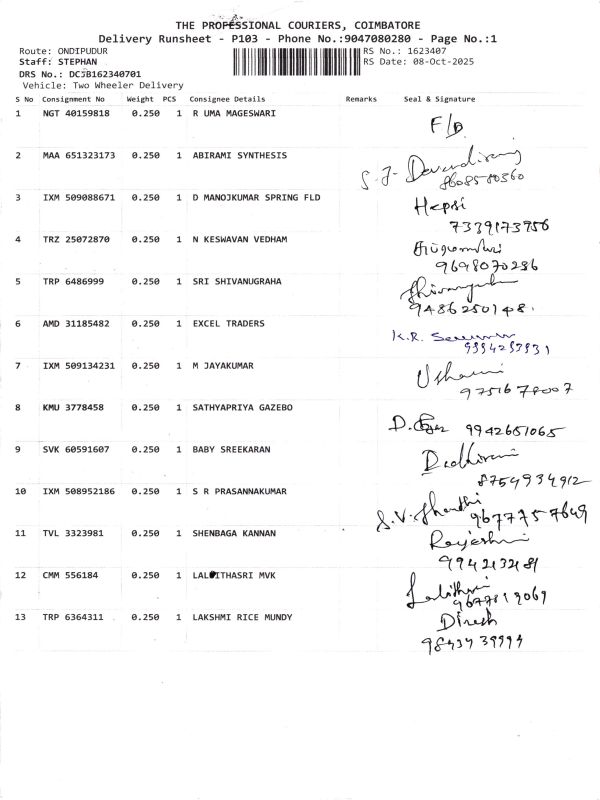 THE PROFESSIONAL COURIERS, COIMBATORE
Delivery Runsheet - P103 - Phone No.:9047080280 - Page No.:1
Route: ONDIPUDUR RS No.: 1623407
Staff: STEPHAN RS Date: 08-Oct-2025
DRS No.: DCJB162340701
Vehicle: Two Wheeler Delivery
S No Consignment No Weight PCS Consignee Details Remarks Seal & Signature
1 NGT 40159818 0.250 1 R UMA MAGESWARI
F/D
2 MAA 651323173 0.250 1 ABIRAMI SYNTHESIS
8608580360
3 IXM 509088671 0.250 1 D MANOJKUMAR SPRING FLD Hepsi
7339173956
4 TRZ 25072870 0.250 1 N KESWAVAN VEDHAM
9698070286
5 TRP 6486999 0.250 1 SRI SHIVANUGRAHA
9486250148.
6 AMD 31185482 0.250 1 EXCEL TRADERS
K.R.
7 IXM 509134231 0.250 1 M JAYAKUMAR
8 KMU 3778458 0.250 1 SATHYAPRIYA GAZEBO
D. 9942651065
9 SVK 60591607 0.250 1 BABY SREEKARAN
8754934912
10 IXM 508952186 0.250 1 S R PRASANNAKUMAR
S.V. Shanthi 9677757649
11 TVL 3323981 0.250 1 SHENBAGA KANNAN
12 CMM 556184 0.250 1 LALITHASRI MVK
9677819069
13 TRP 6364311 0.250 1 LAKSHMI RICE MUNDY Dinesh